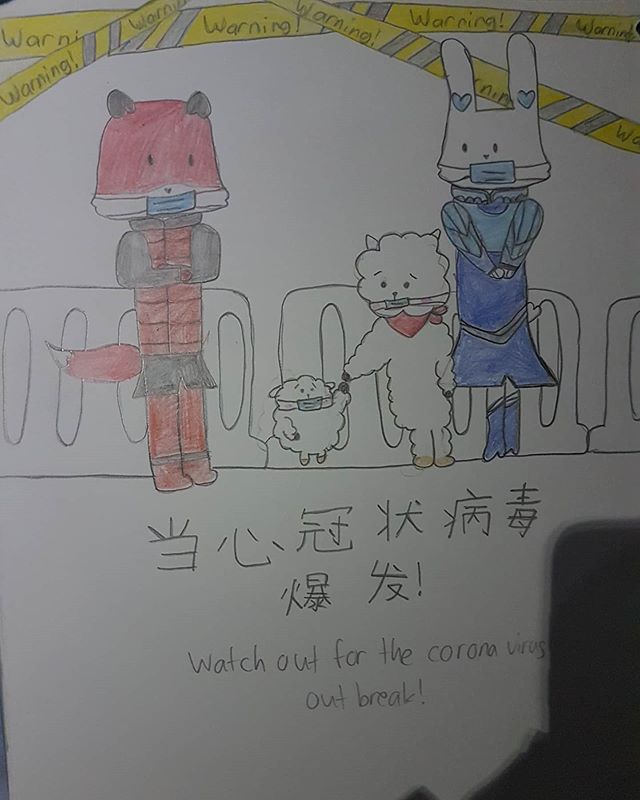 Warning!
Warning!
Warning!
Warning!
Warning!
Warning!
当心冠状病毒
爆发!
Watch out for the corona virus
out break!